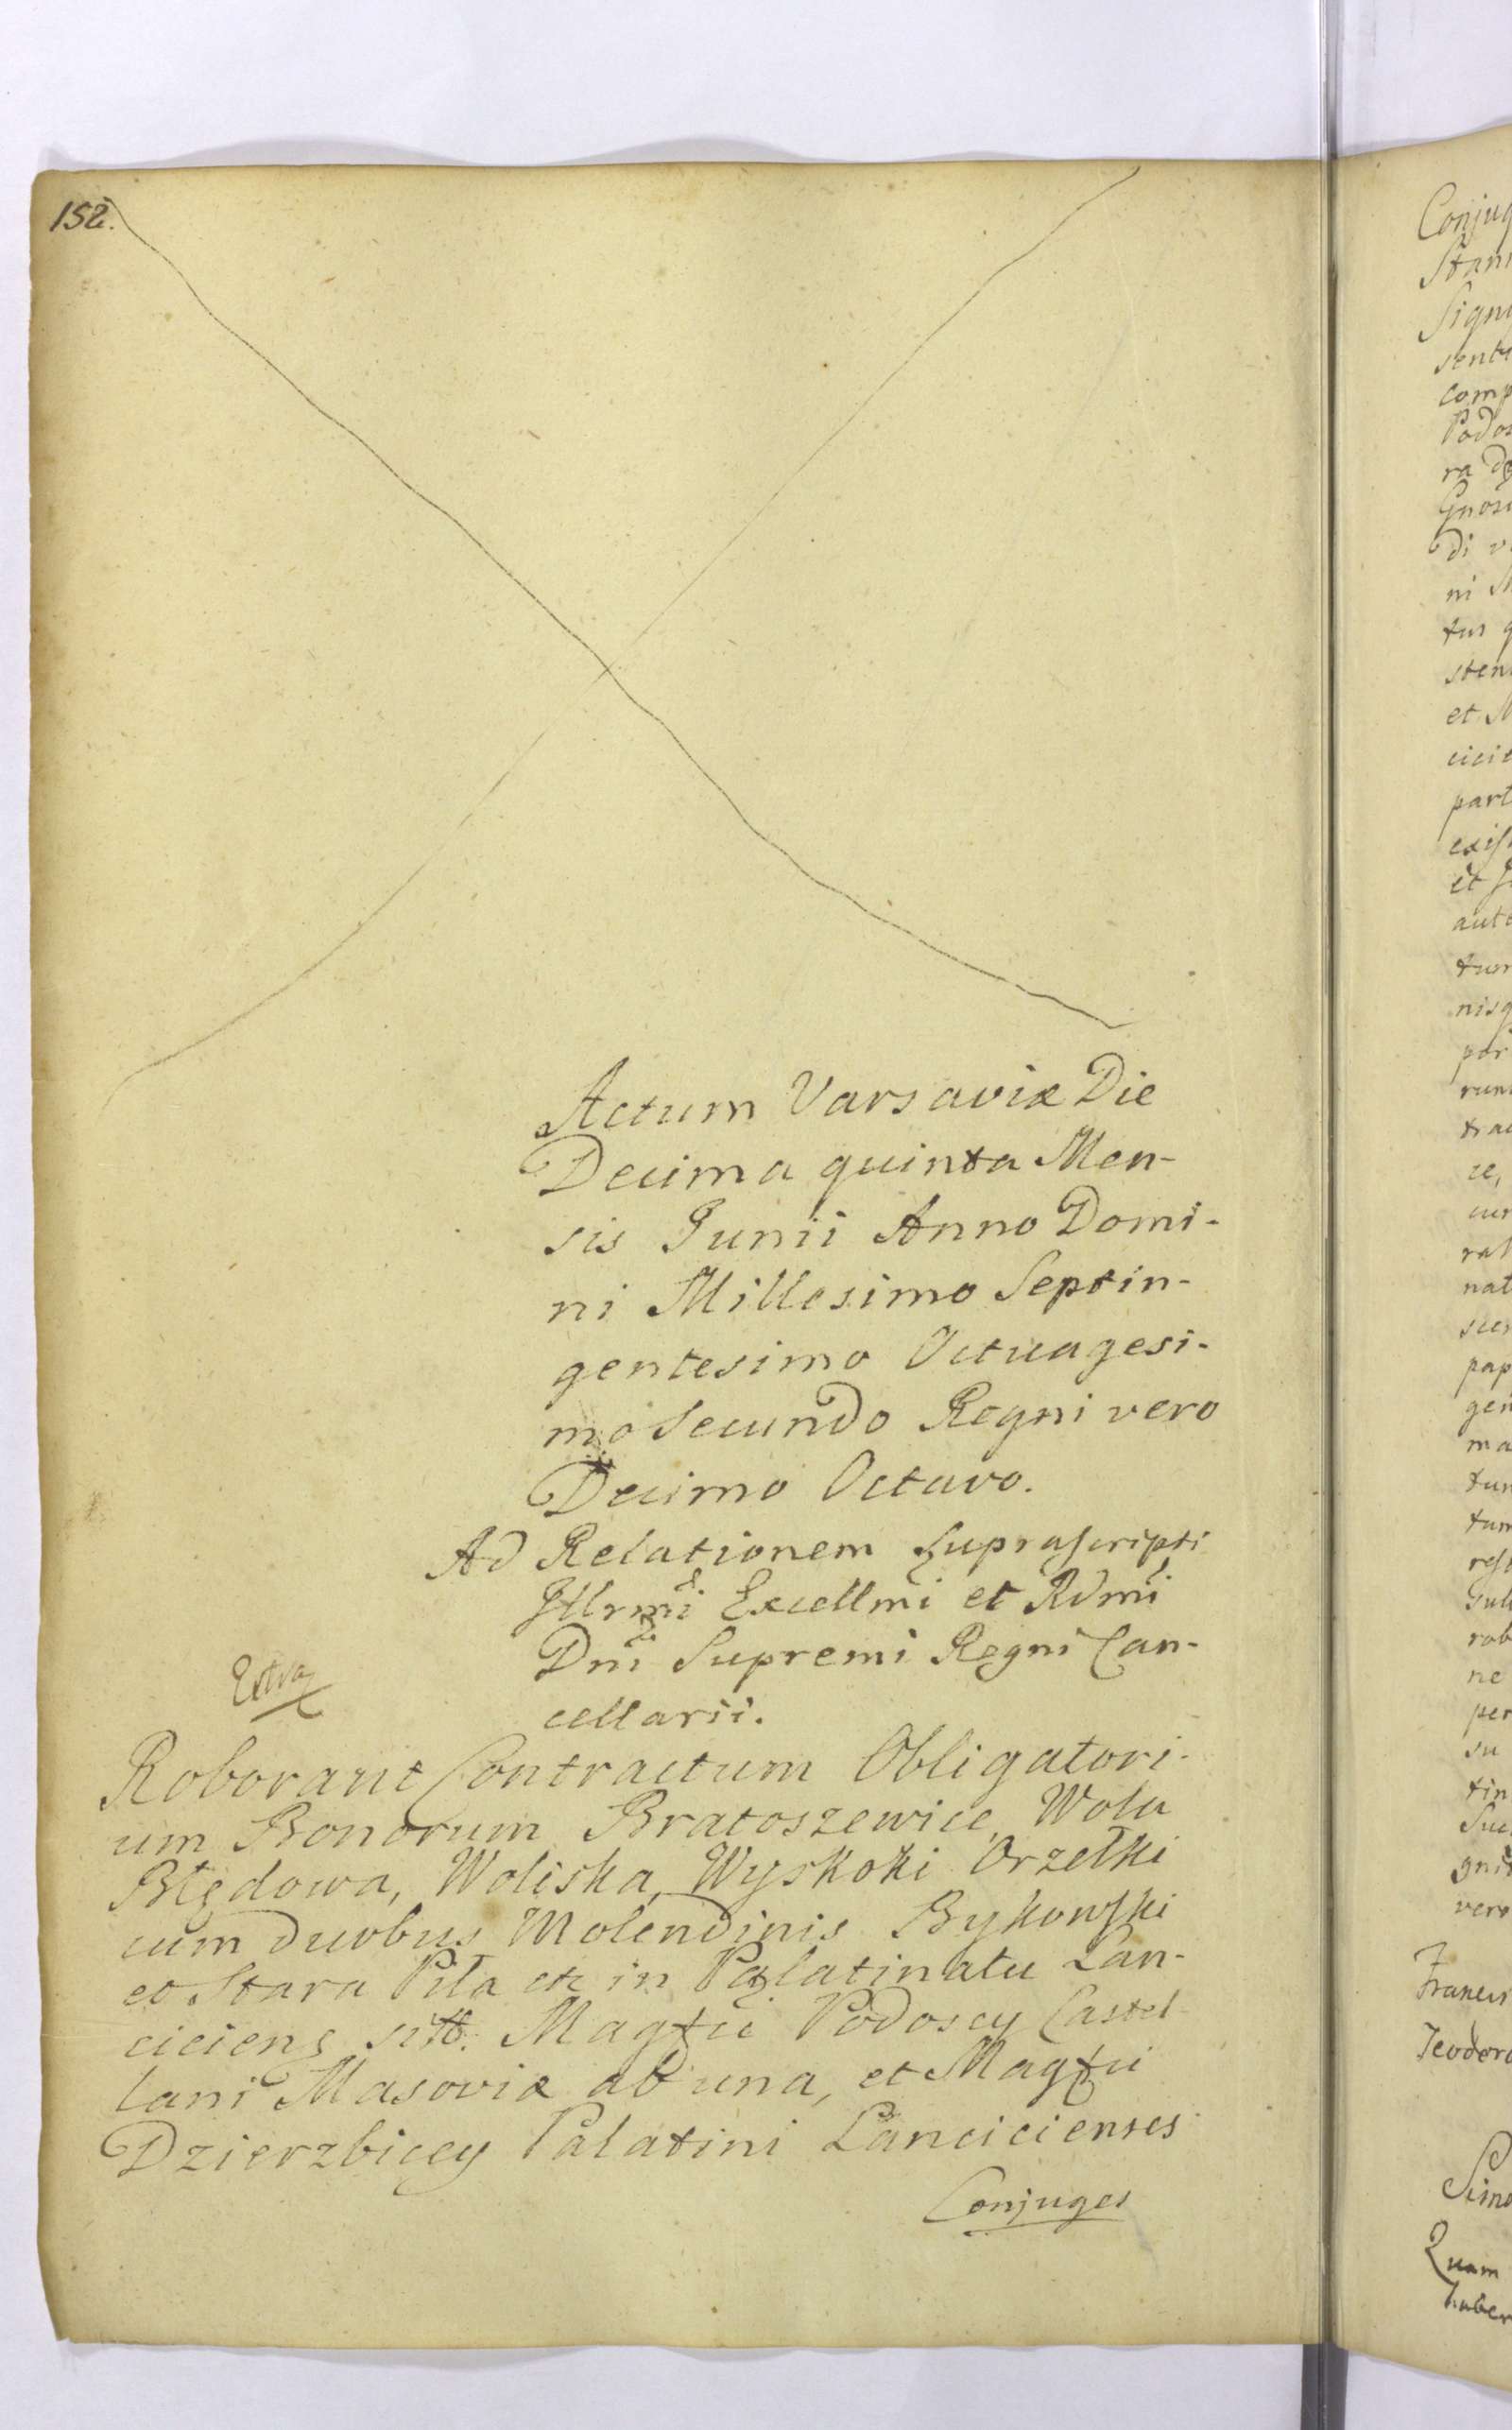 152.
Actum Varsaviæ Die
Decima quinta Men-
sis Junii Anno Domi-
ni Millesimo Septin-
gentesimo Octuagesi-
mo Secundo Regni vero
Decimo Octavo.
Ad Relationem Suprascripti
Illrmi Excellmi et Rdmi
Dni Supremi Regni Can-
cellarii.
Extra
Roborant Contractum Obligatori-
um Bonorum Bratoszewice, Wola
Błędowa, Woliska, Wyskoki Orzełki
cum duobus Molendinis Bykowski
et Stara Piła etc in Palatinatu Lan-
ciciens sitt. Magfci Podoscy Castel-
lani Masoviæ ab una, et Magfci
Dzierzbiccy Palatini Lancicienses
Conjuges
Conjug
Stani
Signi
sentu
comp
Podos
ra
Gnosi
di v
ni
tus q
sten
et M
cicie
part
exis
et
aute
tum
nisq
per
runt
trac
ce,
cum
rat
nat
pap
gen
ma
tum
tum
resi
rob
ne
per
su
tin
Suc
gni
vero
Francis
Teodoro
Simo
Quam
haber